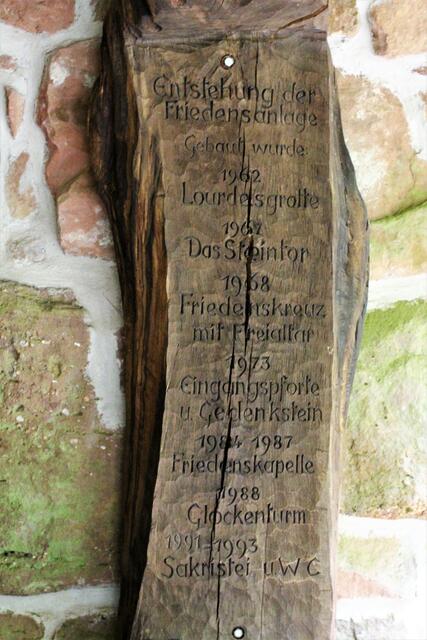 Entstehung der
Friedensanlage
Gebaut wurde:
1962
Lourdesgrotte
Das Steintor
1968
Friedenskreuz
mit Freialtar
1973
Eingangspforte
u. Gedenkstein
1984 1987
Friedenskapelle
1988
Glockenturm
1991-1993
Sakristei u WC